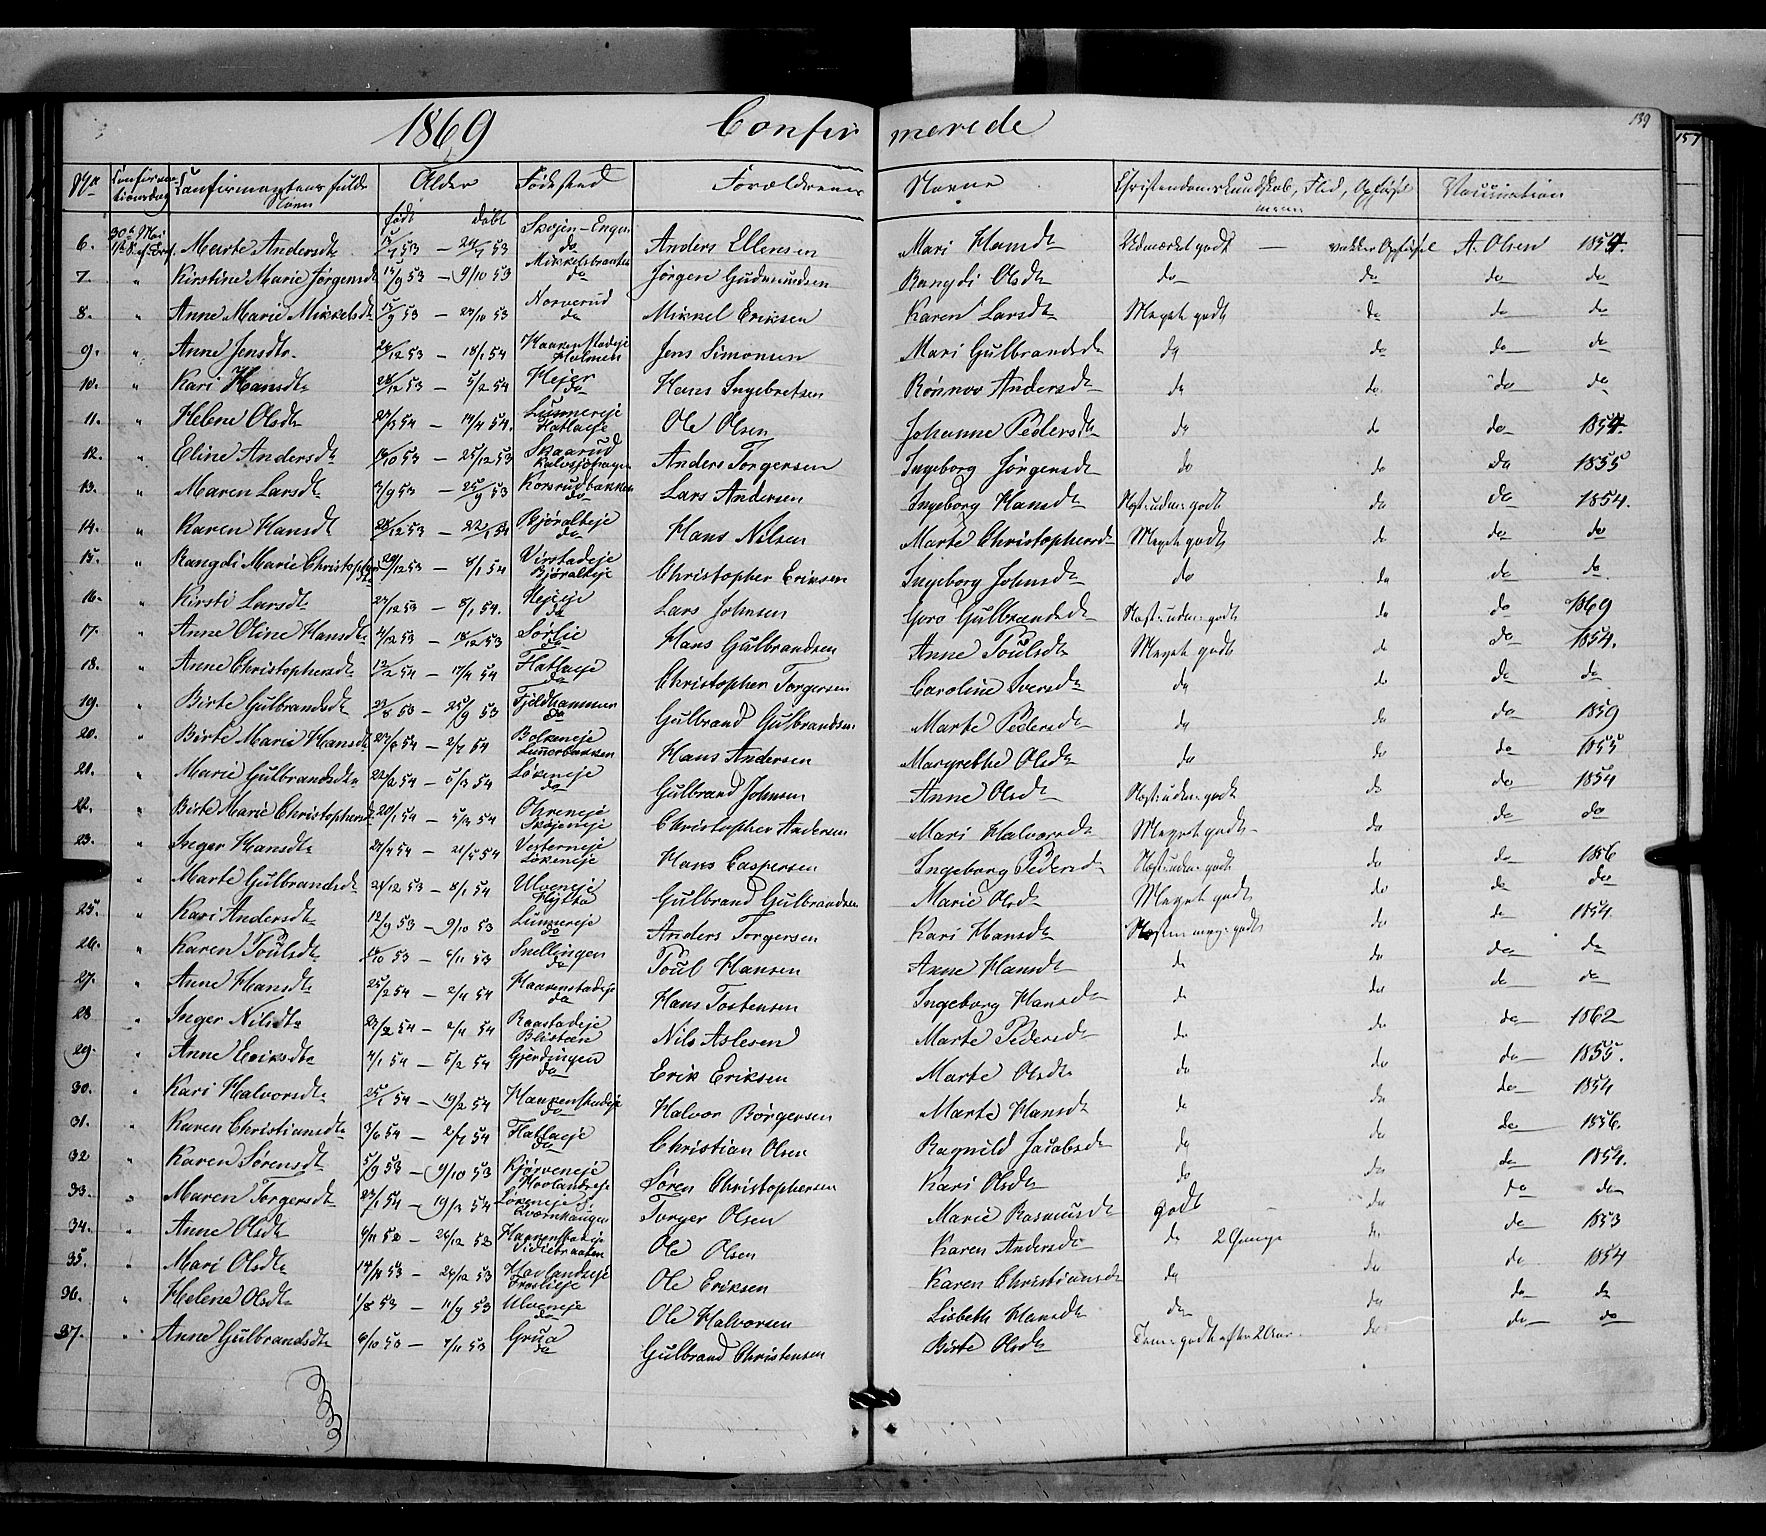 1869 Confirmerede 139
157
No Confirmationsdag Confirmantens fulde Navn Alder født døbt Fødested Forældrenes Navne Christendomskundskab, Flid, Opførsel Vaccination
6. 30te Mai Marte Andersdtr 53 — 53 Skøjen-Engen do Anders Ellensen Mari Hansdtr Udmærket godt — vakker Opførsel A. Olsen 1854
7. " Kirstine Marie Jørgensdtr 15/9 53 — 9/10 53 Mikkelsbraaten do Jørgen Gudmundsen Rangdi Olsdtr do do do do
8. " Anne Marie Mikkelsdtr 15/9 53 — 23/10 53 Norverud do Mikkel Eriksen Karen Larsdtr Meget godt do do do
9. " Anne Jensdtr 26/12 53 — 18/1 54 Haakenstadeje Holmen Jens Simonsen Mari Gulbrandsd do do do do
10. " Kari Hansdtr 28/12 53 — 5/2 54 Hejer do Hans Ingebretsen Rønnov Andersdtr do do do do
11. " Helene Olsdtr 23/3 54 — 17/4 54. Lunnereje Flatlaeje Ole Olsen Johanne Pedersdtr do do do 1854.
12. " Eline Andersdtr 19/10 53 — 25/12 53 Skaarud Anders Torgersen Ingeborg Jørgensdtr do do do 1855
13. " Maren Larsdtr 3/9 53 — 25/9 53 Korsrudbakken do Lars Andersen Ingeborg Hansdtr Nost. udm. godt do do 1854.
14. " Karen Hansdtr 28/12 53 — 22/1 54 Bjøralteje do Hans Nilsen Marte Christophersd Meget godt do do do
15. " Rangdi Marie Christophersdtr 24/12 53 — 8/1 54 Virstadeje Bjøralteje Christopher Eriksen Ingeborg Johnsdtr do do do do
16. " Kirsti Larsdtr 27/12 53 — 8/1 54. Hejeeje do Lars Johnsen Goro Gulbrandsd Nost. udm. godt do do 1869
17. " Anne Oline Hansdtr 4/12 53 — 18/12 53 Sørlie do Hans Gulbrandsen Anne Poulsdtr Meget godt do do 1854.
18. " Anne Christophersdtr 12/2 54 — 17/4 54 Flatlaeje do Christopher Torgersen Caroline Iversd do do do do
19. " Birte Gulbrandsdtr 23/8 53 — 25/9 53 Fjeldhammer do Gulbrand Gulbrandsen Marte Pedersd do do do 1859
20. " Birte Marie Hansdtr 54 — 2/4 54 Bolkeneje Lunnerbakken Hans Andersen Margrethe Olsd do do do 1855
21. " Marie Gulbrandsdtr 22/2 54 — 5/3 54 Løkeneje do Gulbrand Johnsen Anne Olsd Nost. udm. godt do do 1854
22. " Birte Marie Christophersd 20/1 54 — 5/3 54 Ohreneje Skøjeneje Christopher Andersen Mari Halvorsd Meget godt do do do
23. " Inger Hansdtr 54 — 21/5 54 Vesterneje Løkeneje Hans Caspersen Ingeborg Pedersd Nost. udm. godt do do 1856
" Marte Gulbrandsdtr 21/12 53 — 8/1 54 Ulveneje Hytta Gulbrand Gulbrandsen Marie Olsd Meget godt do do do
25. " Kari Andersdtr 12/9 53 — 9/10 53 Lunnereje do Anders Torgersen Kari Hansdtr Nosten meg. godt do do 1854.
26. " Karen Poulsdtr 53 — 6/11 53 Snellingen do Poul Hansen Anne Hansdtr do do do do
27. " Anne Hansdtr 25/2 54 — 2/4 54 Haakenstadeje do Hans Tostensen Ingeborg Hansd do do do do
28 " Inger Nilsdtr 54 — 2/4 54 Raastadeje Blistein Nils Aslesen Marte Pedersd do do do 1862
29. " Anne Eriksdtr 4/1 54 — 5/2 54 Gjerdingen do Erik Eriksen Marte Olsdtr do do do 1855.
30. " Kari Halvorsdtr 25/1 54 — 19/2 54 Haakenstadeje do Halvor Børgersen Marte Hansdtr do do do 1854
31. " Karen Christiansdtr 54 — 2/4 54 Flatlaeje do Christian Olsen Ragnild Jacobsd do do do 1856.
32 " Karen Sørensdtr 5/9 53 — 9/10 53 Kjørveneje Hovlandseje Søren Christophersen Kari Olsdtr do do do 1854.
33. " Maren Torgersdtr 23/1 54 — 19/3 54 Løkeneje Kværnhaugen Torger Olsen Marie Rasmusd godt do do do
34. " Anne Olsdtr 52 — 26/12 52 Haakenstadeje Ole Olsen Karen Andersd do 2 Gange do do 1853
35. " Mari Olsdtr 53 — 26/12 53 Hovlandseje Ole Eriksen Karen Christiansd do do do 1854
36. " Helene Olsdtr 1/8 53 — 11/9 53 Ulveneje do Ole Halvorsen Lisbeth Hansdtr do do do do
37. " Anne Gulbrandsdtr 6/10 53 — 7/11 53 Grua do Gulbrand Christensen Birte Olsdtr godt efter 2 Aar do do do